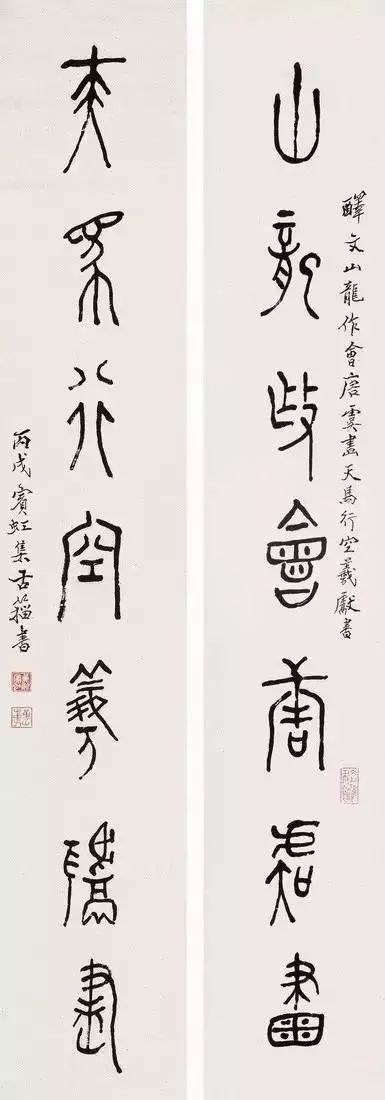 醳文山龍作會唐虞畫天馬行空羲獻書
山龍作會唐虞畫
天馬行空羲獻書
丙戌賓虹集古籀書